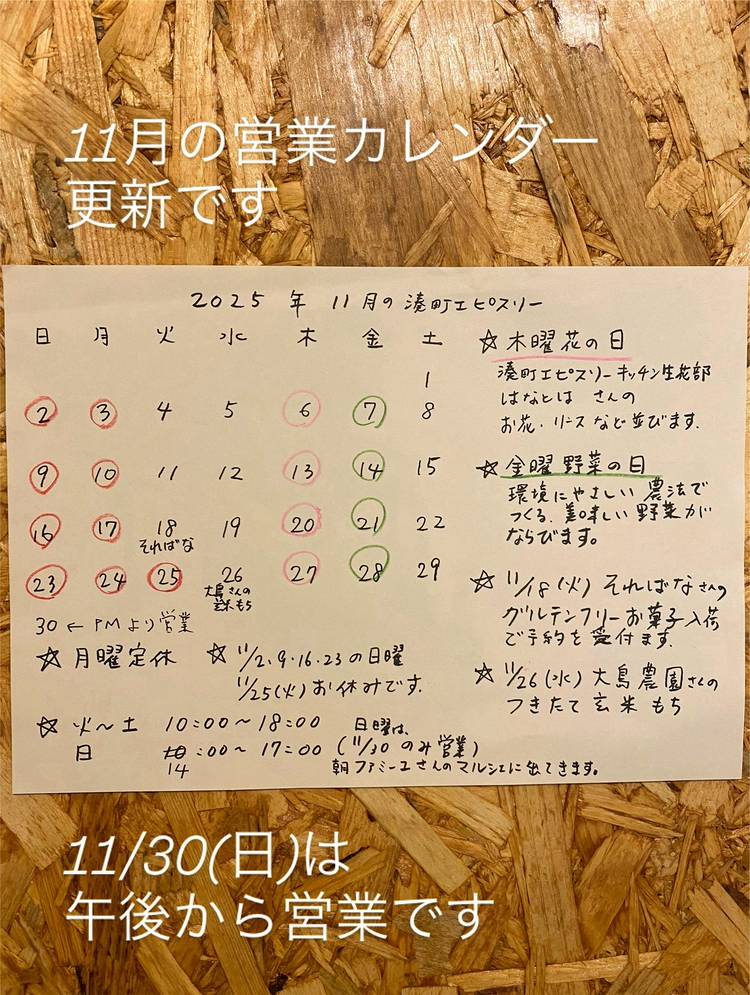 11月の営業カレンダー
更新です
2025 年 11月の 湊町エピスリー
日 月 火 水 木 金 土
1
2 3 4 5 6 7 8
9 10 11 12 13 14 15
16 17 18 19 20 21 22
そればな
23 24 25 26 27 28 29
大島さんの
玄米もち
30 ← PMより営業
☆ 月曜定休
☆ 11/2.9.16.23 の日曜
11/25(火)お休みです.
☆ 火〜土 10:00〜18:00
日 14:00〜17:00
日曜は、
(11/30 のみ営業)
朝ファミーユさんのマルシェに出てきます。
☆ 木曜花の日
湊町エピスリーキッチン生花部
はなとは さんの
お花・リース など並びます.
☆ 金曜 野菜の日
環境にやさしい 農法で
つくる、美味しい野菜が
ならびます。
☆ 11/18(火) そればなさんの
グルテンフリーお菓子入荷
ご予約を受付ます.
☆ 11/26(水) 大島農園さんの
つきたて 玄米もち
11/30(日)は
午後から営業です